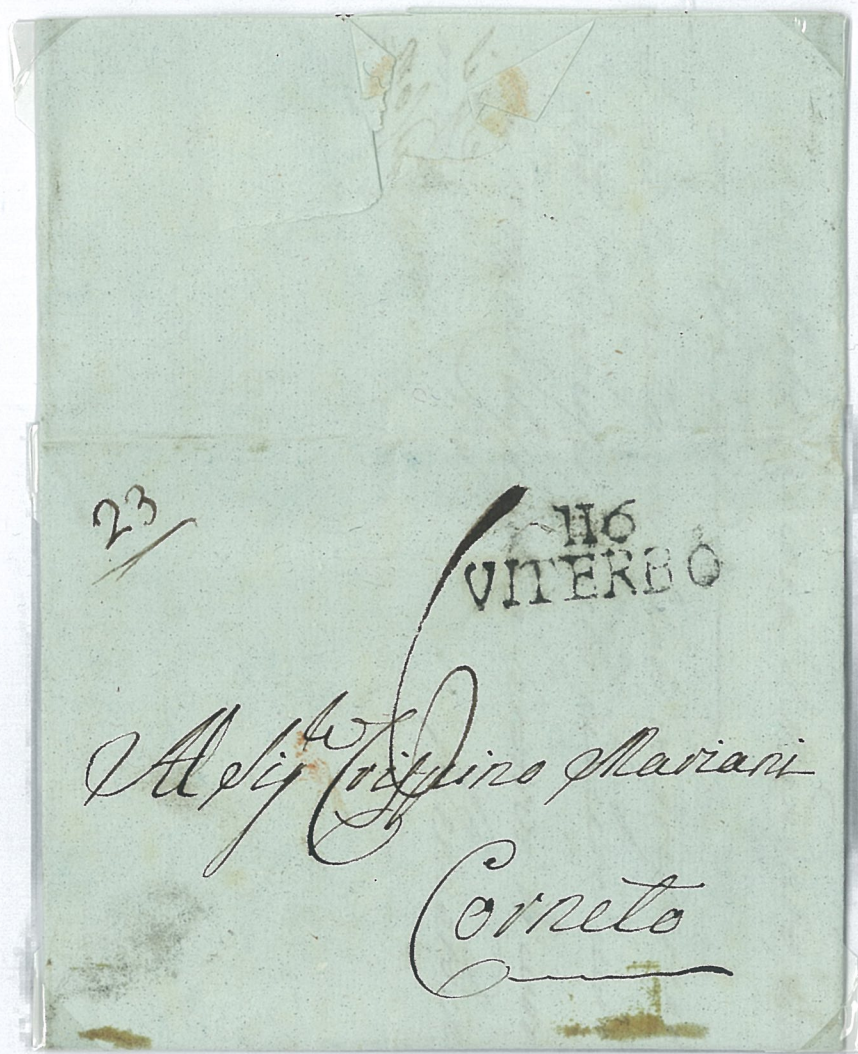 23
6
116
VITERBO
Al Sig.re Crispino Mariani
Corneto